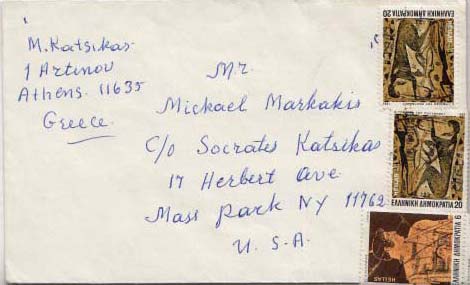 M. Katsikas
1 Artinov
Athens. 11635
Greece.
Mr.
Mickael Markakis
c/o Socrates Katsikas
17 Herbert Ave
Mass Park NY 11762
U. S. A.
ΕΛΛΗΝΙΚΗ ΔΗΜΟΚΡΑΤΙΑ 20
ΕΛΛΗΝΙΚΗ ΔΗΜΟΚΡΑΤΙΑ 20
ΕΛΛΗΝΙΚΗ ΔΗΜΟΚΡΑΤΙΑ 6
HELLAS